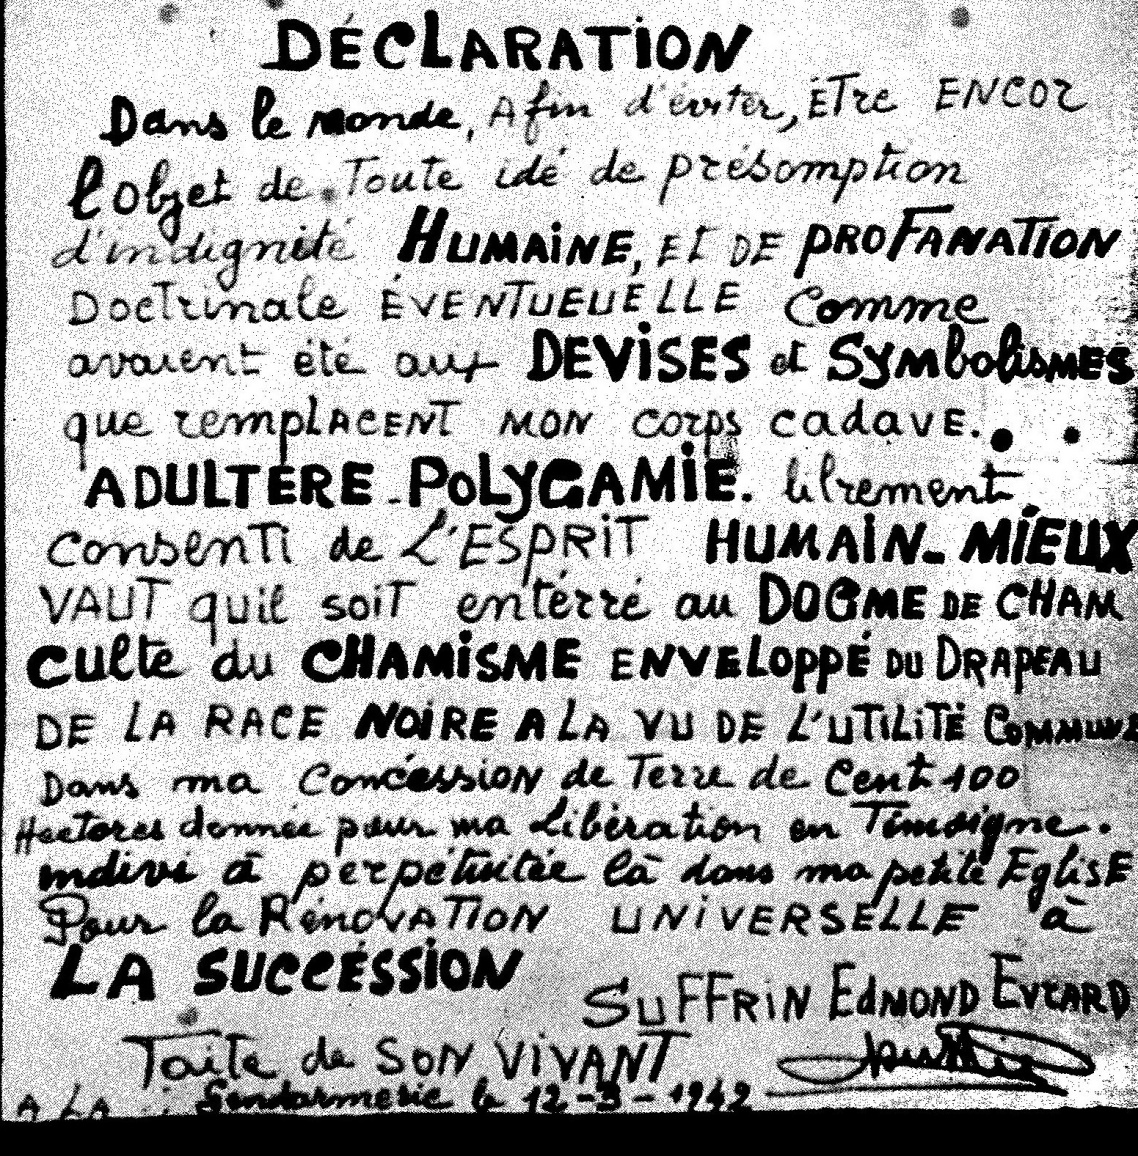 DÉCLARATION
Dans le monde, Afin d'éviter, ÈTre ENCOr
l'objet de Toute idé de présomption
d'indignité HUMAiNE, ET DE PROFANATION
Doctrinale ÉVENTUEUELLE Comme
avaient été aux DEVISES et SymboliSMES
que remplACENT MON corps cadavE.
ADULTÈRE - POLYGAMiE. librement
Consenti de L'ESPRiT HUMAiN - MiEUX
VAUT quil soiT entérré au DOGME DE CHAM
culte du CHAMiSME ENVELOPPÉ DU DRAPEAU
DE LA RACE NOiRE A LA VU DE L'UTiLiTÉ COMMUNE
Dans ma Concéssion de Terre de Cent 100
Hectores donnée pour ma Libération en Témoigne.
indivi à perpétuitée là dans ma petite EglisE
Pour la RénovATiON UNiVERSELLE à
LA SUCCÉSSiON
SUFFRiN EdMOND EVrARD
Taite de SON ViVANT
A LA Gendarmerie le 12-3-1942